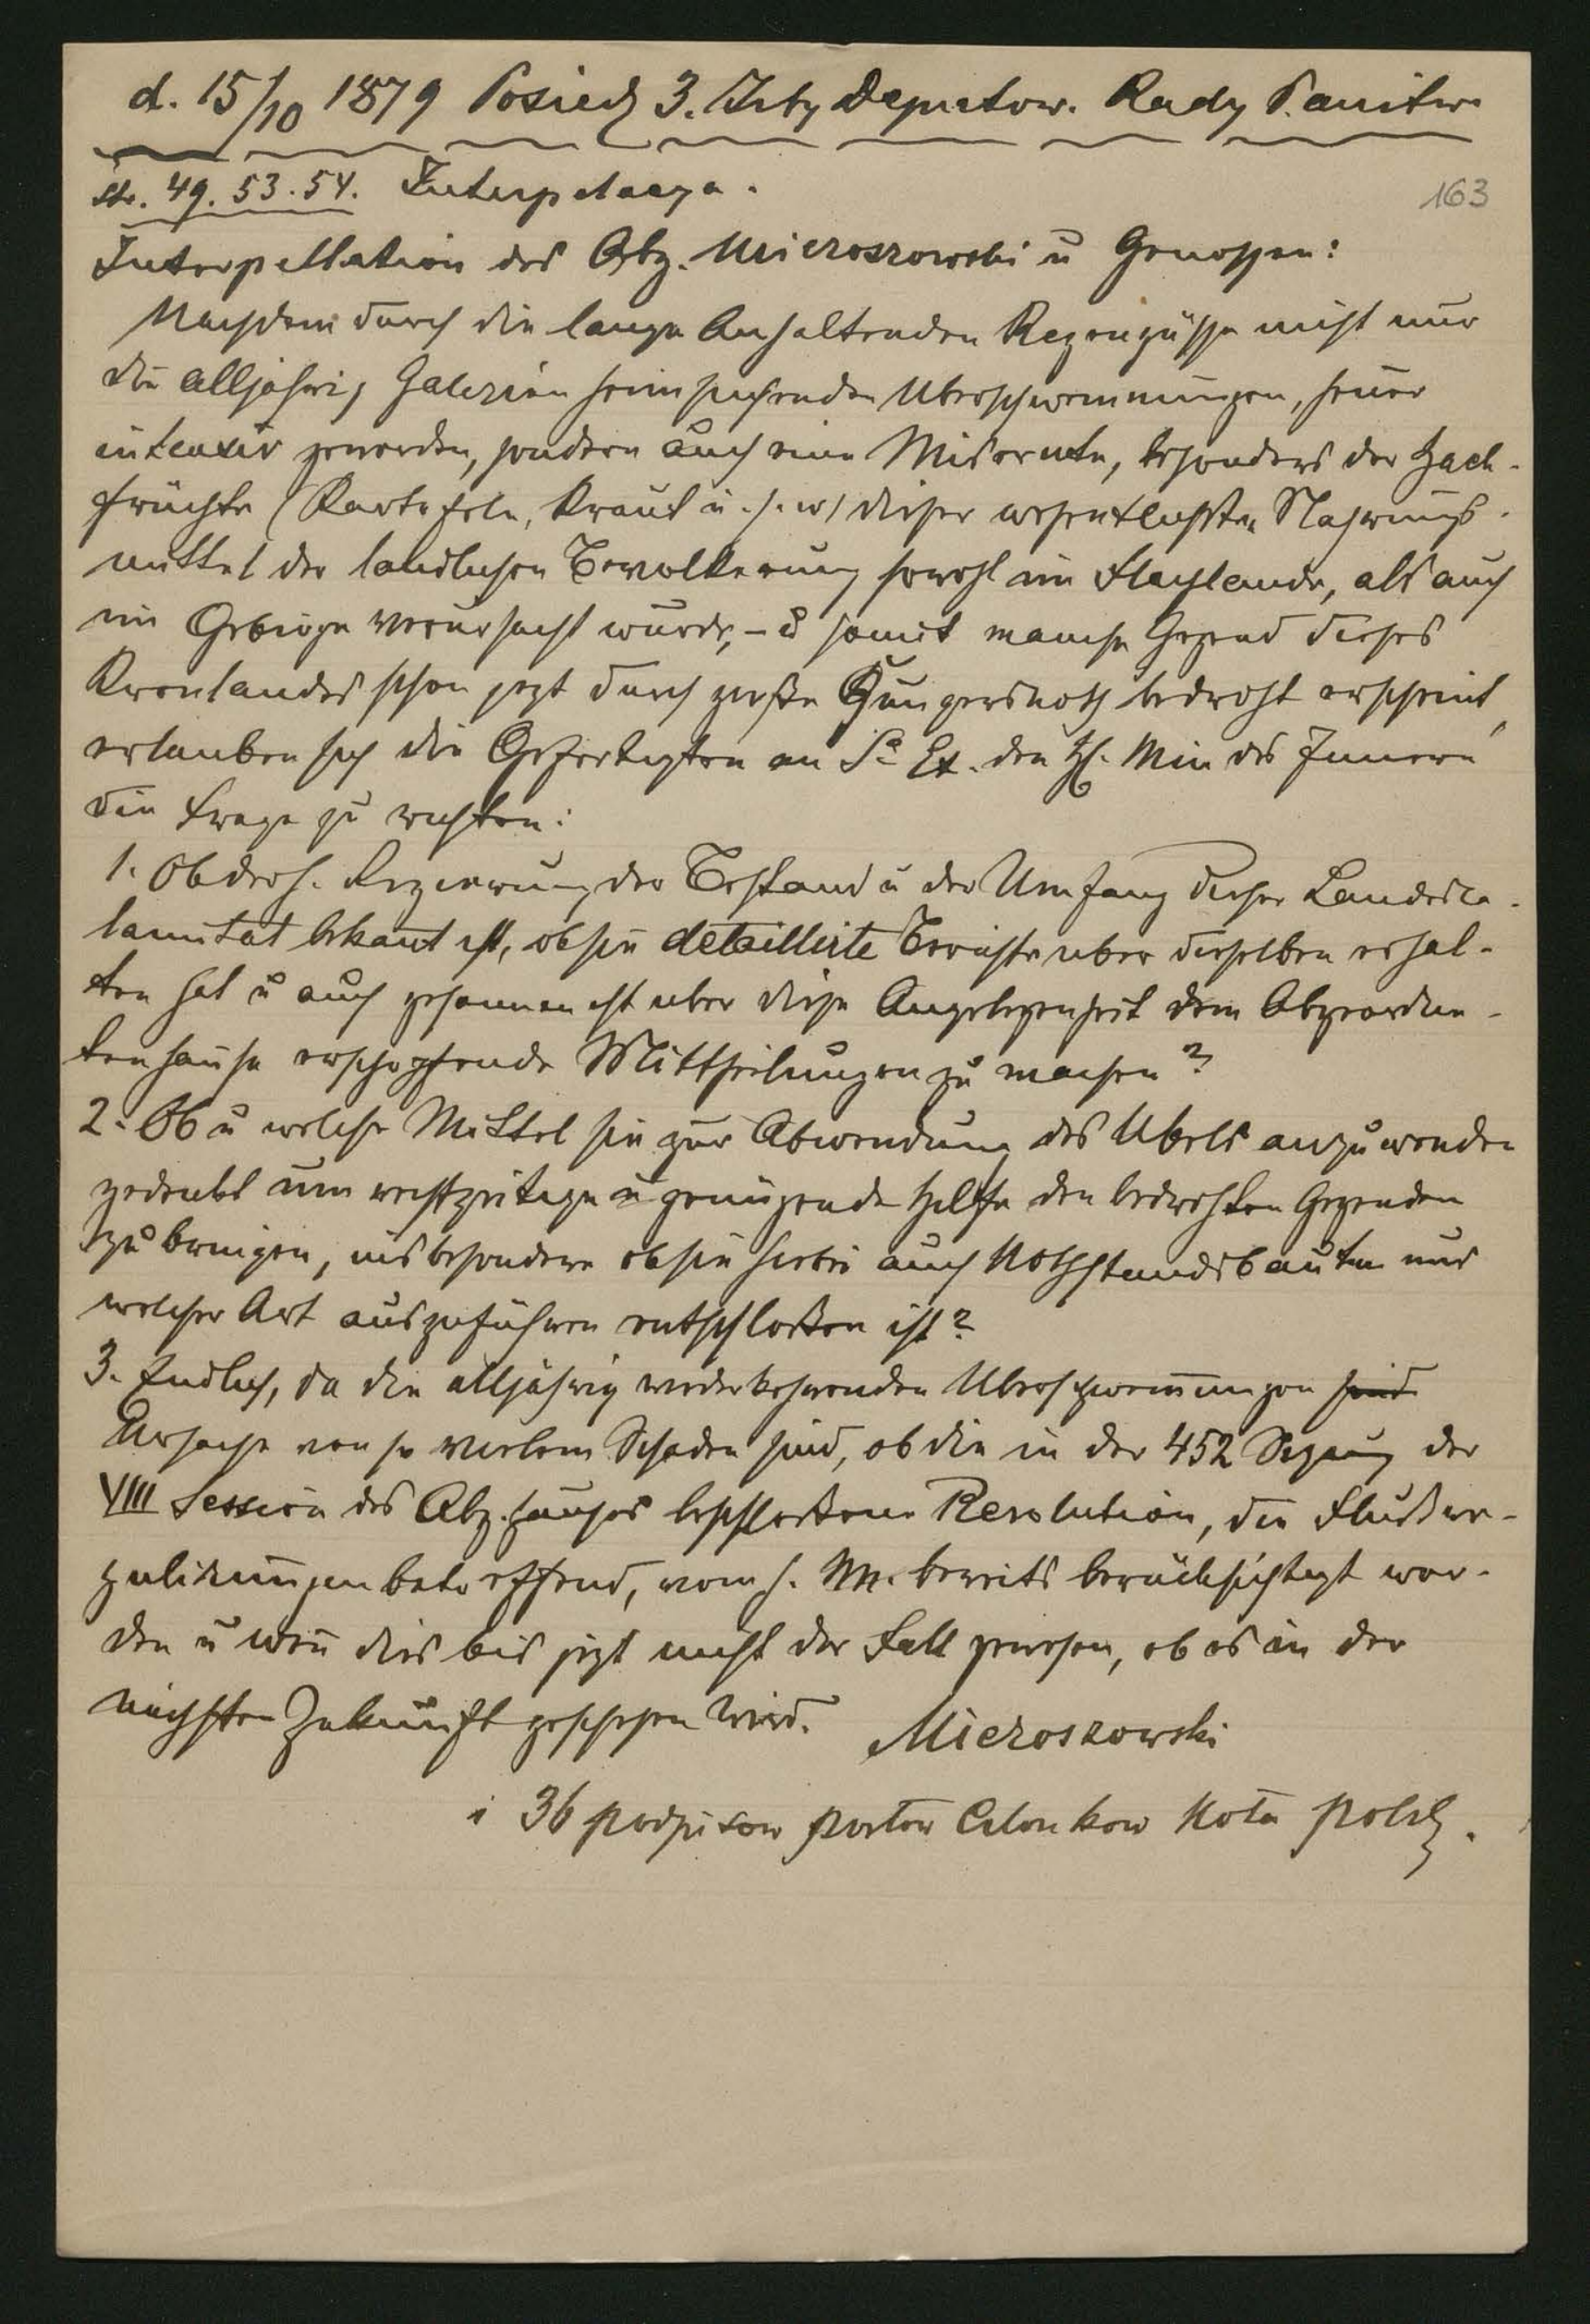 d. 15/10 1879 Posiedz 3. Izby Deputow. Rady Panstwa
str. 49. 53. 54. Interpelacya.
163
Interpellation des Abg. Mieroszowski u Genossen:
Nachdem durch die lange Anhaltenden Regengüsse nicht nur
die alljährig Galizien heimsuchenden Uberschwemmungen, heuer
intensiv geworden, sondern auch eine Misernte, besonders der Hack-
früchte (Kartofeln, Kraut u. s. w) dieser wesentlichsten Nahrungs-
mittel der landlichen Bevolkerung sowohl im Flachlande, als auch
im Gebirge verursacht wurde, – u somit manche Gegend dieses
Kronlandes schon jezt durch große Hungersnoth bedroht erscheint,
erlauben sich die Gefertigten an Se Ex. den H. Min des Innern
die Frage zu richten:
1. Ob der h. Regierung der Bestand u der Umfang dieser Landesca-
lamitat bekannt ist, ob sie detaillirte Berichte uber dieselben erhal-
ten hat u auch gesonnen ist uber diese Angelegenheit dem Abgeordne-
tenhause erschopfende Mittheilungen zu machen?
2. Ob u welche Mittel sie zur Abwendung des Ubels anzuwenden
gedenkt um rechtzeitige u genugende Hilfe den bedrohten Gegenden
zu bringen, insbesondere ob sie hierbei auch Nothstandsbauten und
welcher Art auszuführen entschloßen ist?
3. Endlich, da die alljährig wiederkehrenden Uberschwem̄ungen sind
Ursache von so vielem Schaden sind, ob die in der 452 Sizung der
VIII Session des Abg. hauses beschloßene Resolution, die Flußre-
gulirungen betreffend, vom h. M. bereits berücksichtigt wor-
den u wen̄ dies bis jezt nicht der Fall gewesen, ob es in der
nächsten Zukunft geschehen wird. Mieroszowski
i 36 podpisow posłow Członkow Koła polsk.